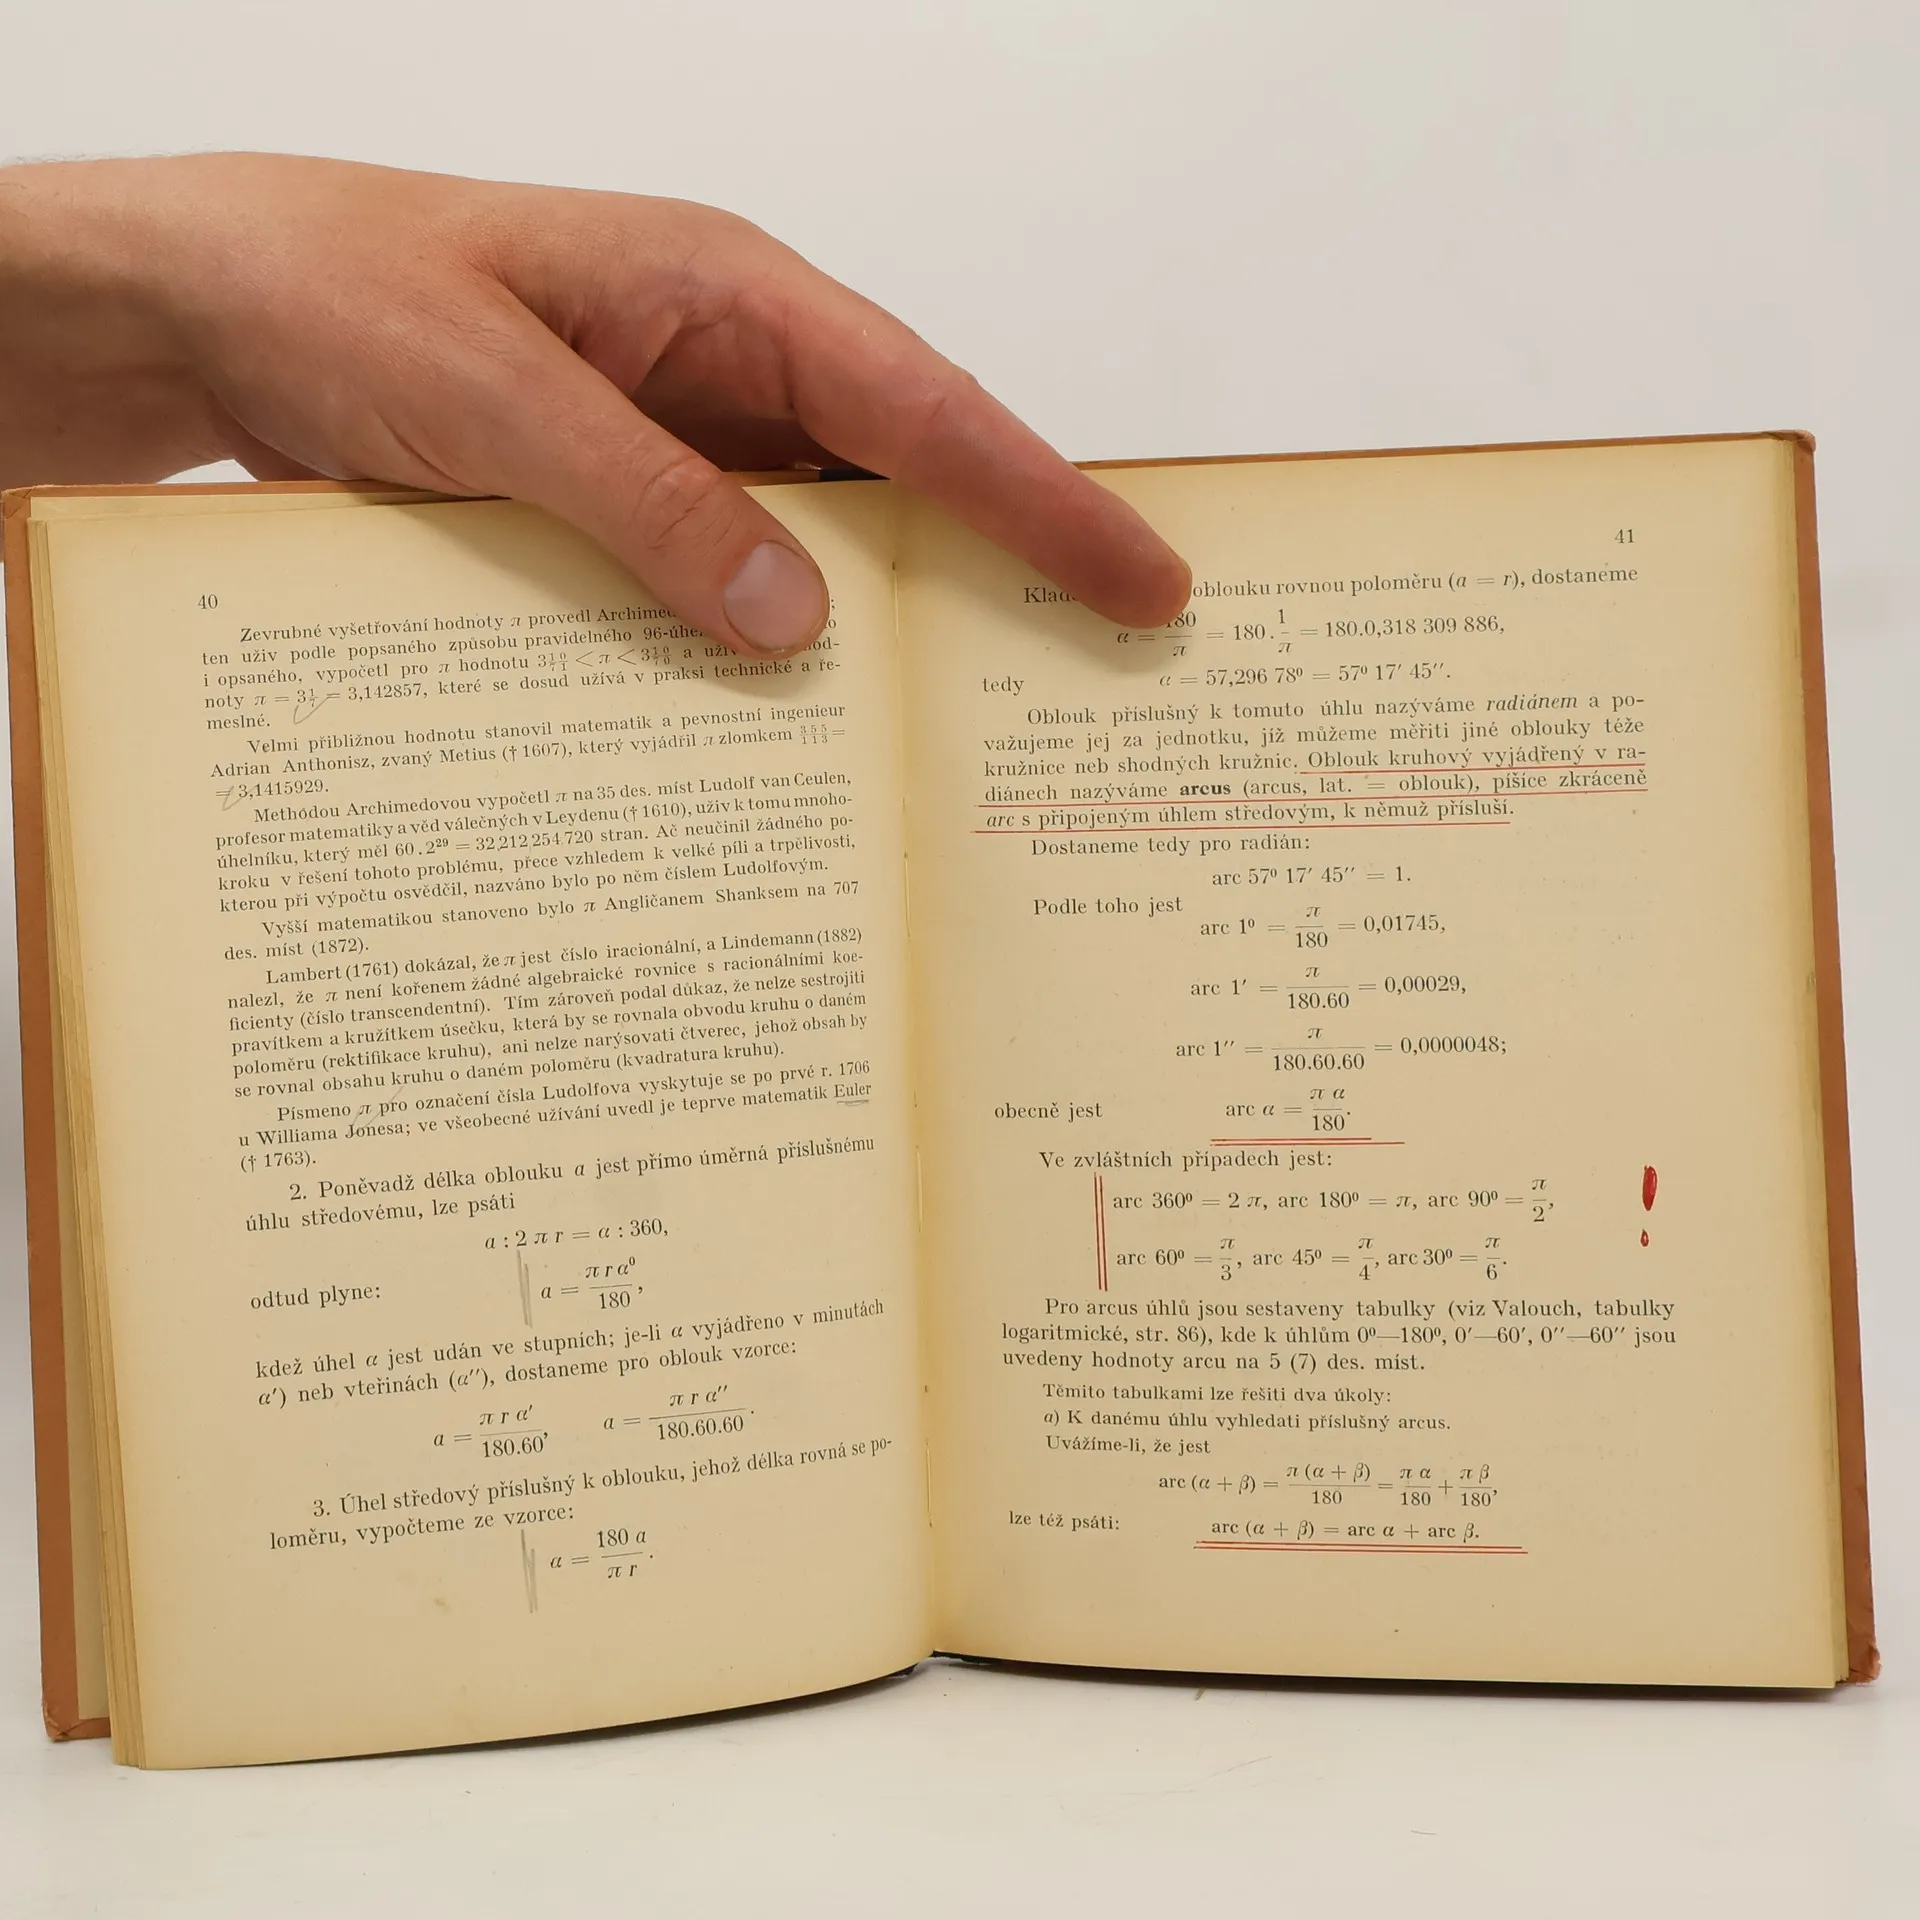 40
Zevrubné vyšetřování hodnoty π provedl ;
ten uživ podle popsaného způsobu pravidelného
i opsaného, vypočetl pro π hodnotu 3 10/71 < π < 3 10/70 a
noty π = 3 1/7 = 3,142857, které se dosud užívá v praksi technické a ře-
meslné.
Velmi přibližnou hodnotu stanovil matematik a pevnostní ingenieur
Adrian Anthonisz, zvaný Metius († 1607), který vyjádřil π zlomkem 355/113 =
= 3,1415929.
Methodou Archimedovou vypočetl π na 35 des. míst Ludolf van Ceulen,
profesor matematiky a věd válečných v Leydenu († 1610), uživ k tomu mnoho-
úhelníku, který měl 60 . 2²⁹ = 32,212 254 720 stran. Ač neučinil žádného po-
kroku v řešení tohoto problému, přece vzhledem k velké píli a trpělivosti,
kterou při výpočtu osvědčil, nazváno bylo po něm číslem Ludolfovým.
Vyšší matematikou stanoveno bylo π Angličanem Shanksem na 707
des. míst (1872).
Lambert (1761) dokázal, že π jest číslo iracionální, a Lindemann (1882)
nalezl, že π není kořenem žádné algebraické rovnice s racionálními koe-
ficienty (číslo transcendentní). Tím zároveň podal důkaz, že nelze sestrojiti
pravítkem a kružítkem úsečku, která by se rovnala obvodu kruhu o daném
poloměru (rektifikace kruhu), ani nelze narýsovati čtverec, jehož obsah by
se rovnal obsahu kruhu o daném poloměru (kvadratura kruhu).
Písmeno π pro označení čísla Ludolfova vyskytuje se po prvé r. 1706
u Williama Jonesa; ve všeobecné užívání uvedl je teprve matematik Euler
(† 1763).
2. Poněvadž délka oblouku a jest přímo úměrná příslušnému
úhlu středovému, lze psáti
a : 2 π r = α : 360,
odtud plyne: a = π r α⁰ / 180 ,
kdež úhel α jest udán ve stupních; je-li α vyjádřeno v minutách
α′) neb vteřinách (α″), dostaneme pro oblouk vzorce:
a = π r α′ / 180.60 , a = π r α″ / 180.60.60 .
3. Úhel středový příslušný k oblouku, jehož délka rovná se po-
loměru, vypočteme ze vzorce:
α = 180 a / π r .
41
oblouku rovnou poloměru (a = r), dostaneme
α = 180 / π = 180 . 1 / π = 180.0,318 309 886,
tedy α = 57,296 78⁰ = 57⁰ 17′ 45″.
Oblouk příslušný k tomuto úhlu nazýváme radiánem a po-
važujeme jej za jednotku, jíž můžeme měřiti jiné oblouky téže
kružnice neb shodných kružnic. Oblouk kruhový vyjádřený v ra-
diánech nazýváme arcus (arcus, lat. = oblouk), píšíce zkráceně
arc s připojeným úhlem středovým, k němuž přísluší.
Dostaneme tedy pro radián:
arc 57⁰ 17′ 45″ = 1.
Podle toho jest
arc 1⁰ = π / 180 = 0,01745,
arc 1′ = π / 180.60 = 0,00029,
arc 1″ = π / 180.60.60 = 0,0000048;
obecně jest arc α = π α / 180 .
Ve zvláštních případech jest:
arc 360⁰ = 2 π, arc 180⁰ = π, arc 90⁰ = π / 2 ,
arc 60⁰ = π / 3 , arc 45⁰ = π / 4 , arc 30⁰ = π / 6 .
!
Pro arcus úhlů jsou sestaveny tabulky (viz Valouch, tabulky
logaritmické, str. 86), kde k úhlům 0⁰—180⁰, 0′—60′, 0″—60″ jsou
uvedeny hodnoty arcu na 5 (7) des. míst.
Těmito tabulkami lze řešiti dva úkoly:
a) K danému úhlu vyhledati příslušný arcus.
Uvážíme-li, že jest
arc (α + β) = π (α + β) / 180 = π α / 180 + π β / 180 ,
lze též psáti: arc (α + β) = arc α + arc β.